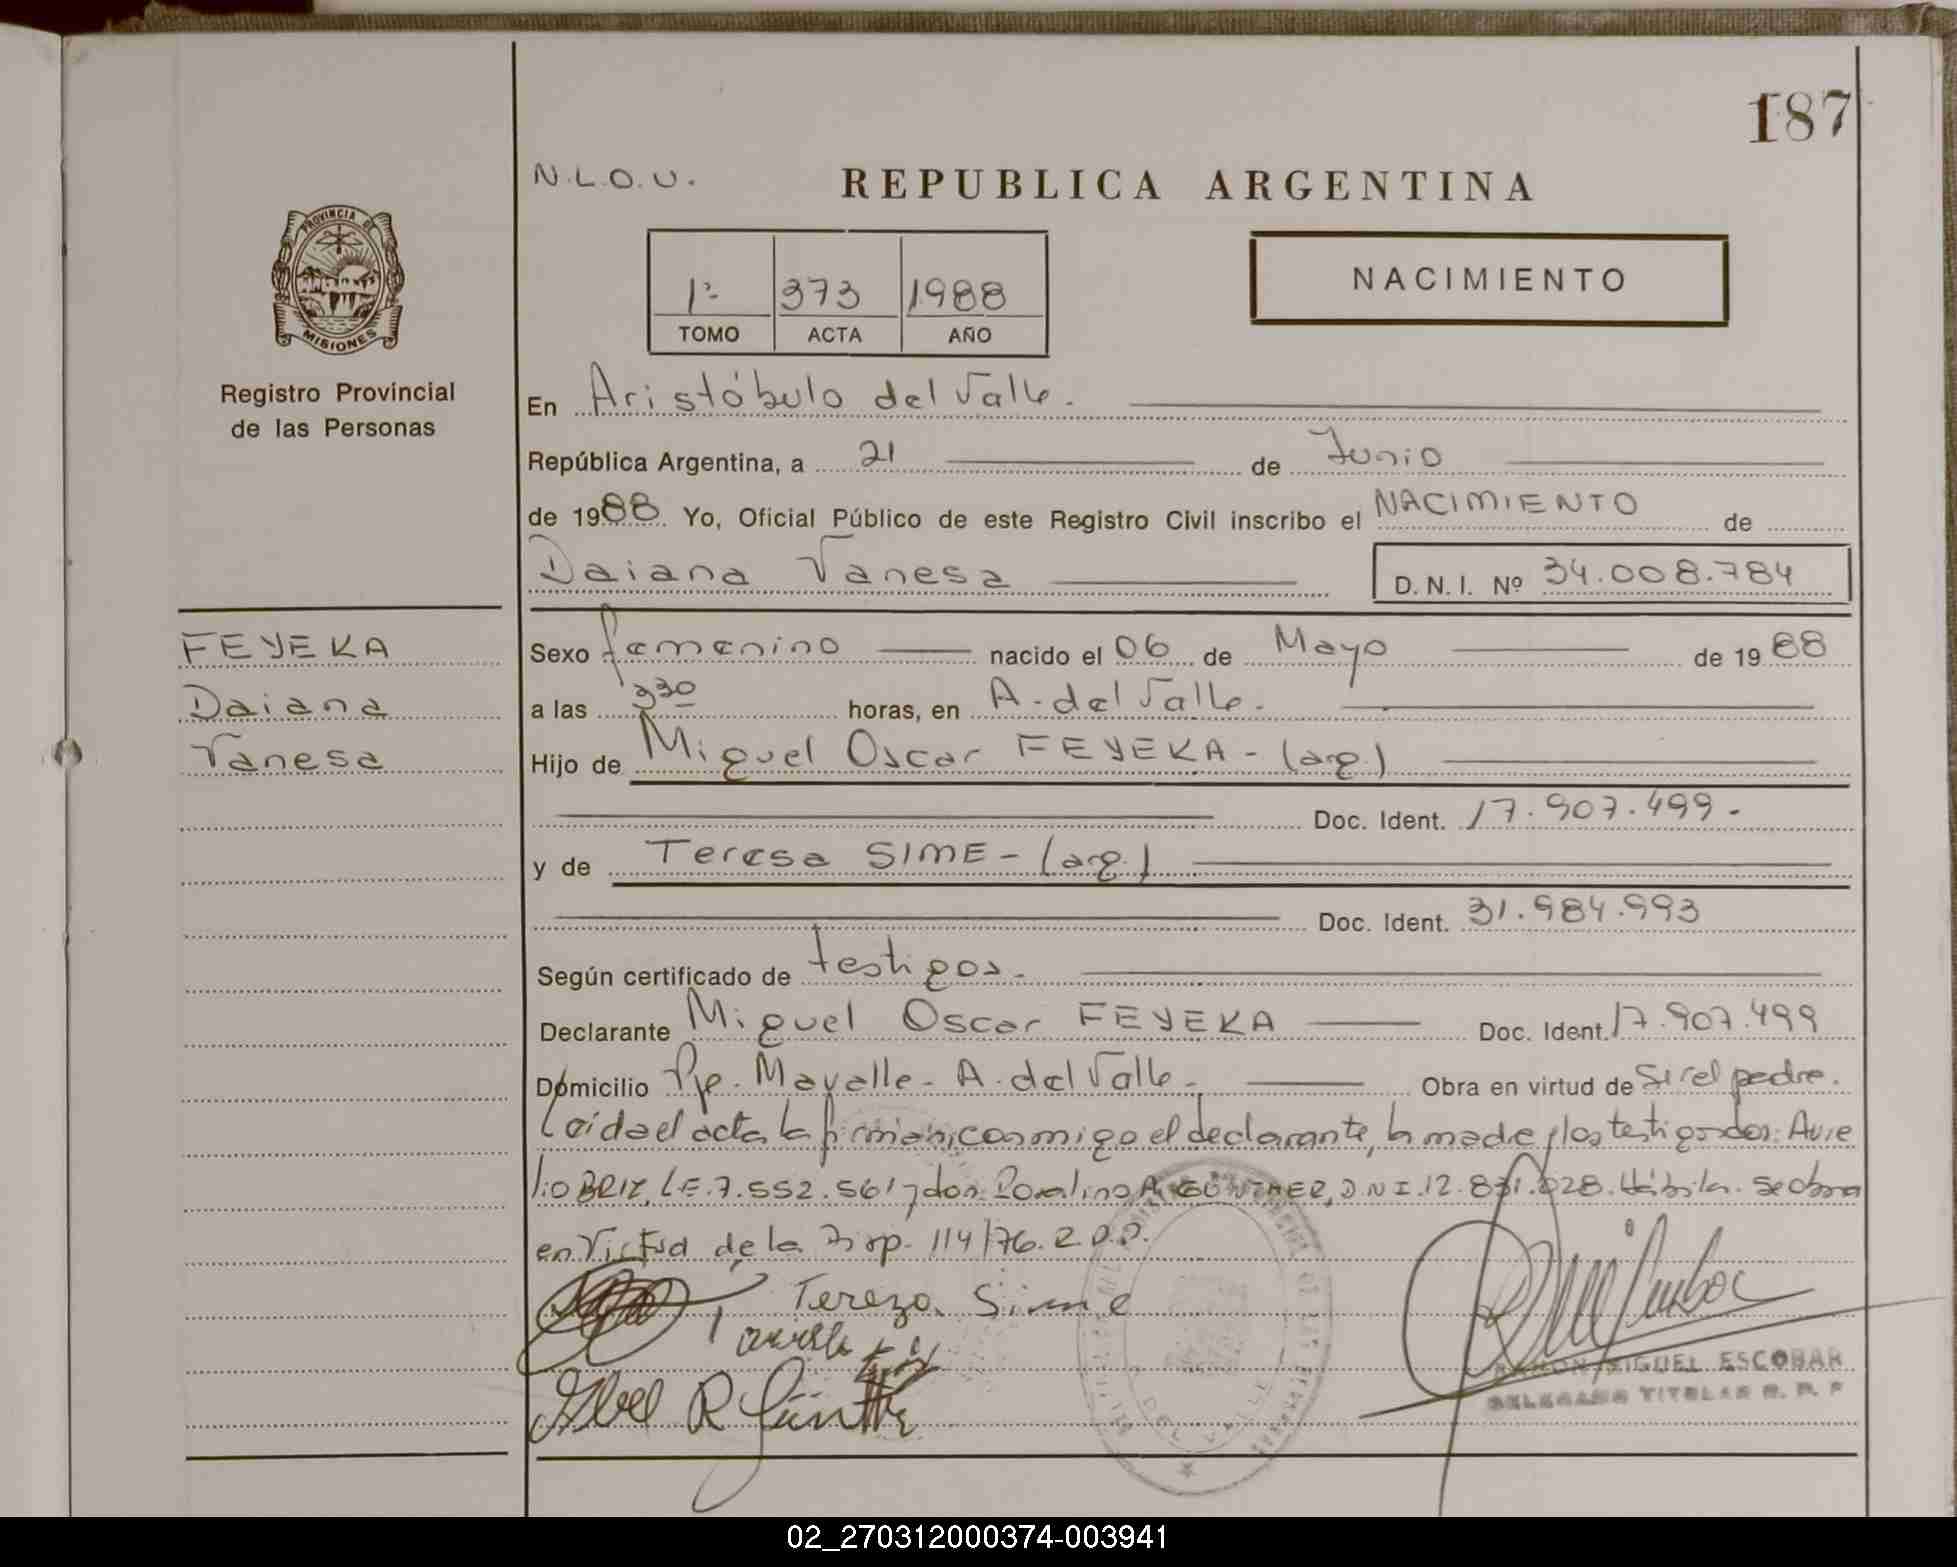 187
N.L.O.U.
REPUBLICA ARGENTINA
PROVINCIA DE
MISIONES
Registro Provincial
de las Personas
1º 373 1988
TOMO ACTA AÑO
NACIMIENTO
En Aristóbulo del Valle.
República Argentina, a 21 de Junio
de 1988 Yo, Oficial Público de este Registro Civil inscribo el NACIMIENTO de
Daiana Vanesa D.N.I. Nº 34.008.784
FEYEKA
Daiana
Vanesa
Sexo femenino nacido el 06 de Mayo de 1988
a las 330 horas, en A. del Valle.
Hijo de Miguel Oscar FEYEKA - (arg.)
Doc. Ident. 17.907.499-
y de Teresa SIME - (arg.)
Doc. Ident. 31.984.993
Según certificado de testigos.
Declarante Miguel Oscar FEYEKA Doc. Ident. 17.907.499
Domicilio Pje. Mavalle - A. del Valle - Obra en virtud de Sirel padre.
Leida el acta la firman conmigo el declarante, la madre y los testigos don: Aure
lio BRIZ, LE.7.552.561 y don Rosalino A. GÜNTHER, DNI.12.831.028. Hábiles. Se obra
en Virtud de la Disp. 114/76. R.P.P.
Tereza Sime
Abel R
RAMON MIGUEL ESCOBAR
DELEGADO TITULAR R. P. P
DEL VALLE
02_270312000374-003941